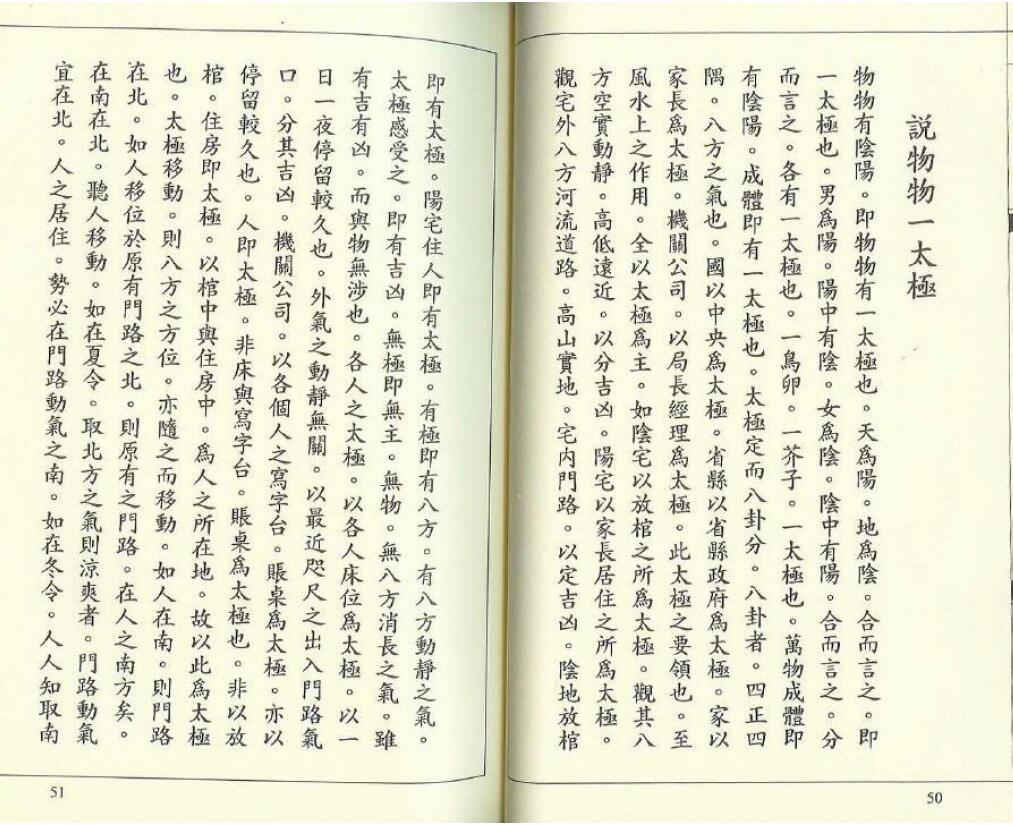 說物物一太極
物物有陰陽。即物物有一太極也。天爲陽。地爲陰。合而言之。即
一太極也。男爲陽。陽中有陰。女爲陰。陰中有陽。合而言之。分
而言之。各有一太極也。一鳥卵。一芥子。一太極也。萬物成體即
有陰陽。成體即有一太極也。太極定而八卦分。八卦者。四正四
隅。八方之氣也。國以中央爲太極。省縣以省縣政府爲太極。家以
家長爲太極。機關公司。以局長經理爲太極。此太極之要領也。至
風水上之作用。全以太極爲主。如陰宅以放棺之所爲太極。觀其八
方空實動靜。高低遠近。以分吉凶。陽宅以家長居住之所爲太極。
觀宅外八方河流道路。高山實地。宅內門路。以定吉凶。陰地放棺
50
即有太極。陽宅住人即有太極。有極即有八方。有八方動靜之氣。
太極感受之。即有吉凶。無極即無主。無物。無八方消長之氣。雖
有吉有凶。而與物無涉也。各人之太極。以各人床位爲太極。以一
日一夜停留較久也。外氣之動靜無關。以最近咫尺之出入門路氣
口。分其吉凶。機關公司。以各個人之寫字台。賬桌爲太極。亦以
停留較久也。人即太極。非床與寫字台。賬桌爲太極也。非以放
棺。住房即太極。以棺中與住房中。爲人之所在地。故以此爲太極
也。太極移動。則八方之方位。亦隨之而移動。如人在南。則門路
在北。如人移位於原有門路之北。則原有之門路。在人之南方矣。
在南在北。聽人移動。如在夏令。取北方之氣則涼爽者。門路動氣
宜在北。人之居住。勢必在門路動氣之南。如在冬令。人人知取南
51